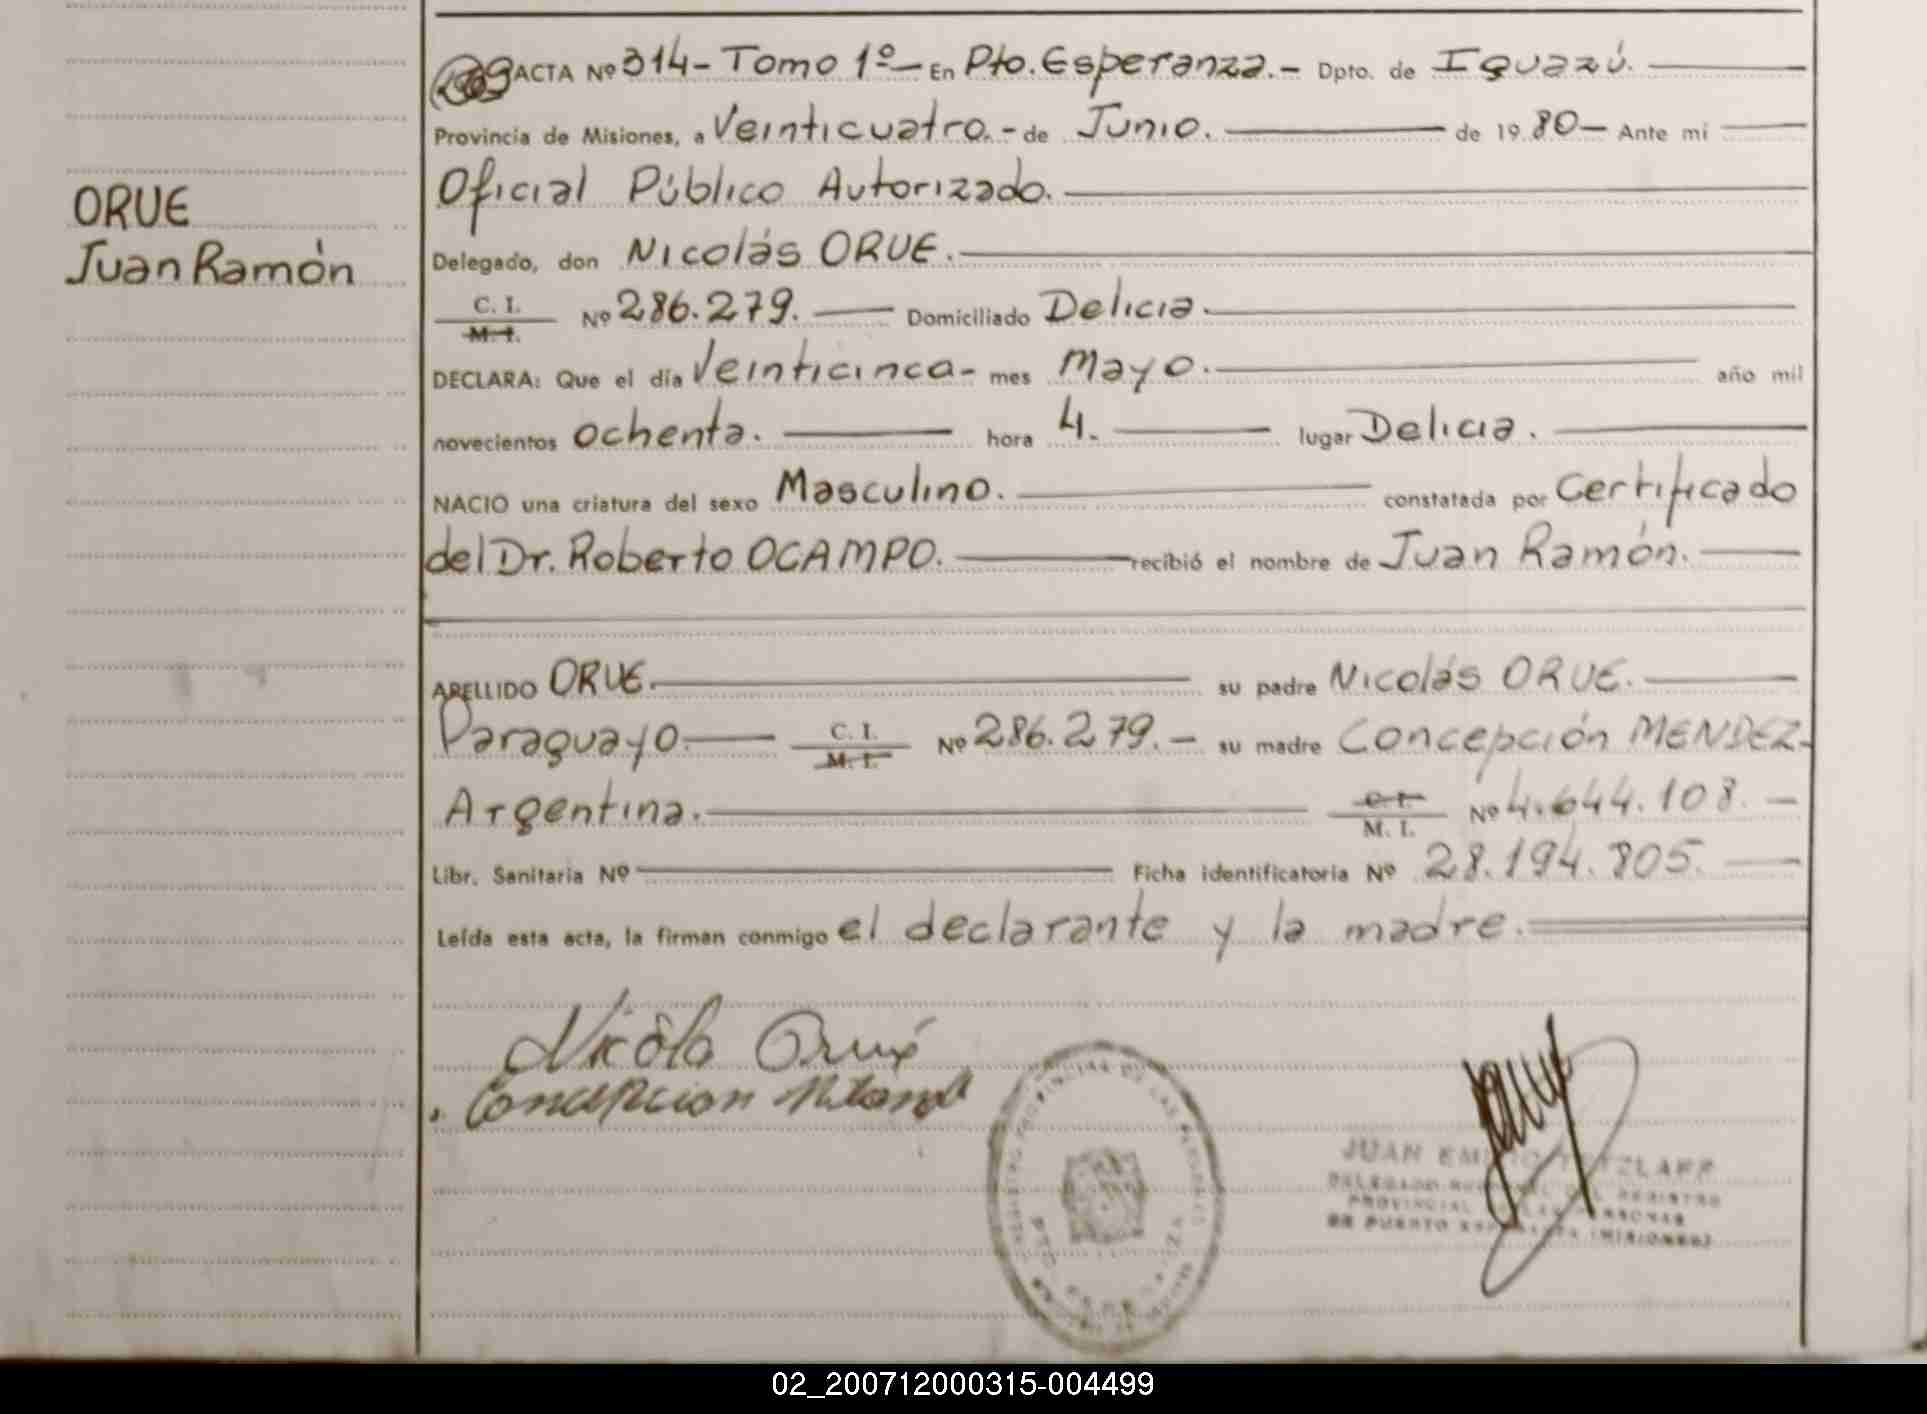 ACTA Nº 314- Tomo 1º- En Pto. Esperanza.- Dpto. de Iguazú.
Provincia de Misiones, a Veinticuatro.- de Junio. de 1980- Ante mi
Oficial Público Autorizado.
ORUE
Juan Ramón
Delegado, don Nicolás ORUE.
C. I.
M. I.
Nº 286.279. Domiciliado Delicia.
DECLARA: Que el día Veinticinca- mes Mayo. año mil
novecientos ochenta. hora 4. lugar Delicia.
NACIO una criatura del sexo Masculino. constatada por Certificado
del Dr. Roberto OCAMPO. recibió el nombre de Juan Ramón.
APELLIDO ORUE. su padre Nicolás ORUE.
Paraguayo. C. I. Nº 286.279.- su madre Concepción MENDEZ-
M. I.
Argentina. C. I. Nº 4.644.108.-
M. I.
Libr. Sanitaria Nº Ficha identificatoria Nº 28.194.805.
Leída esta acta, la firman conmigo el declarante y la madre.
Nicola Orué
Concepcion
JUAN
DELEGADO DEL REGISTRO
PROVINCIAL
DE PUERTO (MISIONES)
02_200712000315-004499